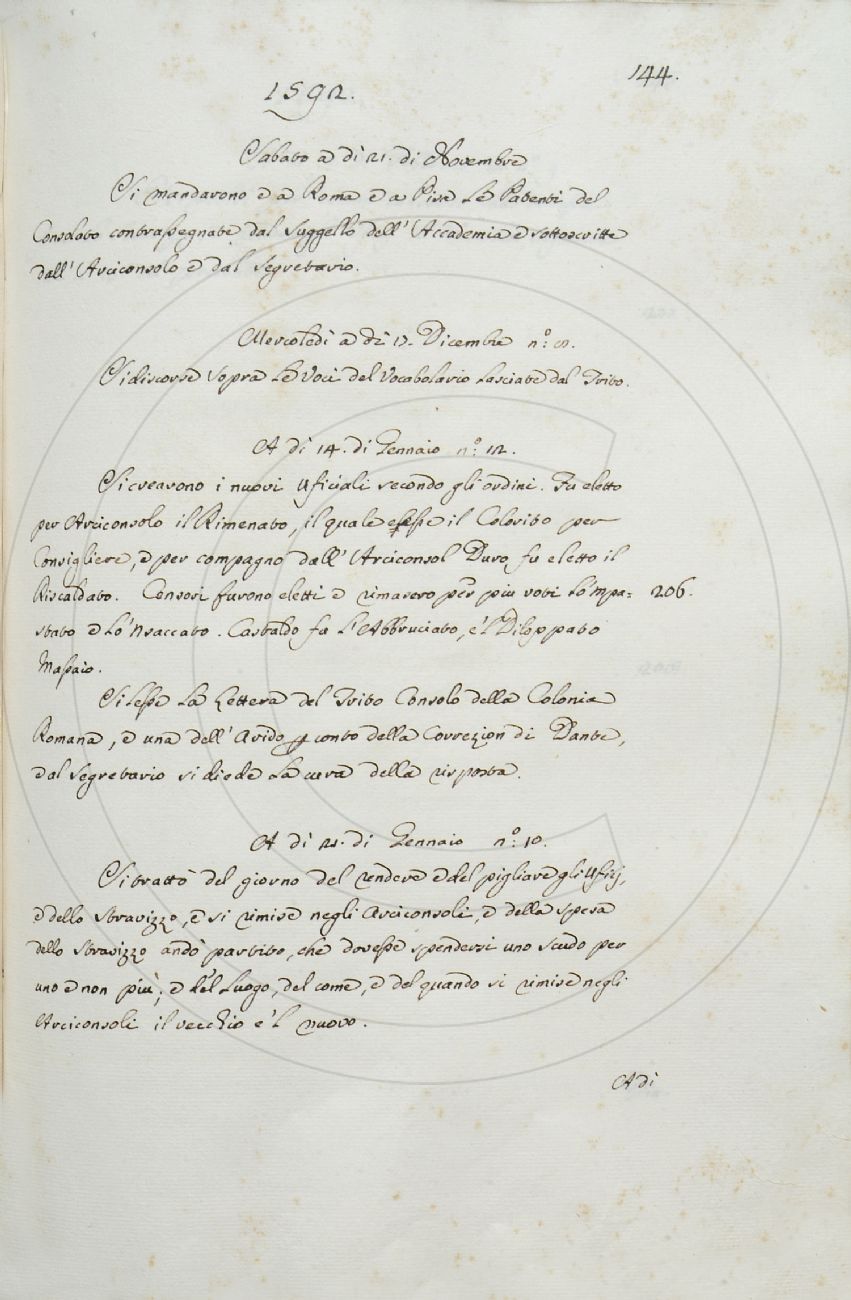 144.
1592.
Sabato a dì 21. di Novembre
Si mandarono e a Roma e a Pisa le Patenti del
Consolato contrassegnate dal suggello dell'Accademia e sottoscritte
dall'Arciconsolo e dal Segretario.
Mercoledì a dì Dicembre n.º 8.
Si discorse sopra le voci del Vocabolario lasciate dal Trito.
A dì 14. di Gennaio n.º 12.
Si crearono i nuovi Uficiali secondo gli ordini. Fu eletto
per Arciconsolo il Rimenato, il quale esesse il Colorito per
Consigliere, e per compagno dall'Arciconsol Duro fu eletto il
Riscaldato. Censori furono eletti e rimasero per piu voti lo'mpa= 206.
stato e lo'nsaccato. Castaldo fu l'Abbruciato, e'l Diloppato
Massaio.
Si lesse la Lettera del Trito Consolo della Colonia
Romana, e una dell'Arido p conto della Correzion di Dante,
e al Segretario si diede la cura della risposta.
A dì 21. di Gennaio n.º 10.
Si trattò del giorno del rendere e del pigliare gli Ufizj,
e dello stravizzo, e si rimise negli Arciconsoli, e della spesa
dello stravizzo andò partito, che dovesse spendersi uno scudo per
uno e non più; e del luogo, del come, e del quando si rimise negli
Arciconsoli il vecchio e'l nuovo.
A dì